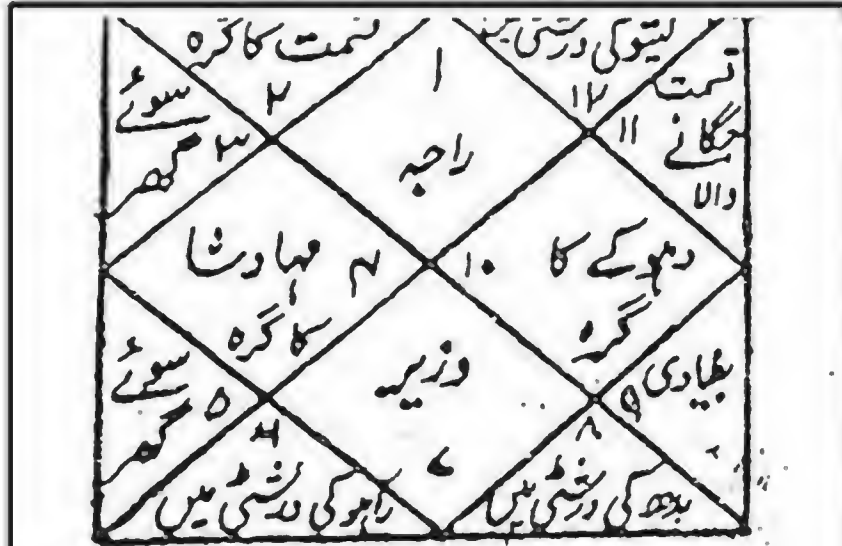 قسمت کا گرہ
۲
۱
راجہ
کیتو کی درشٹی میں
۱۲
قسمت
۱۱ جگانے
والا
سوئے
۳
گھر
مہادشا ۴
کا گرہ
۱۰ دہوکے کا
گرہ
سوئے
۵
گھر
وزیر
۷
بنیادی
۹
۶
راہو کی درشٹی میں
۸
بدھ کی درشٹی میں